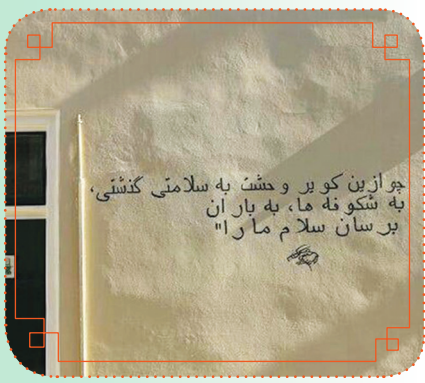 چو ازین کویر وحشت به سلامتی گذشتی،
به شکوفه ها، به باران
برسان سلام ما را"